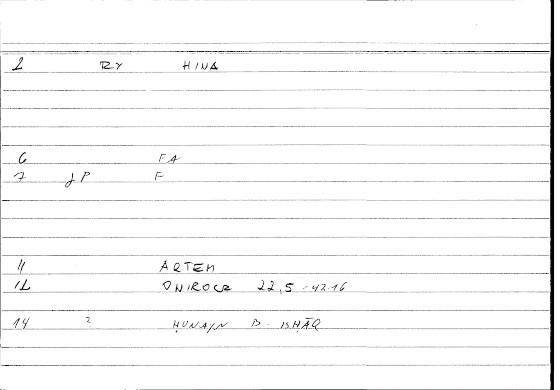 1 RY HINA
6 FA
7 JP F
11 ARTEM
12 ONIROCR 22,5 - 42.16
14 ? ḤUNAYN B. ISḤĀQ